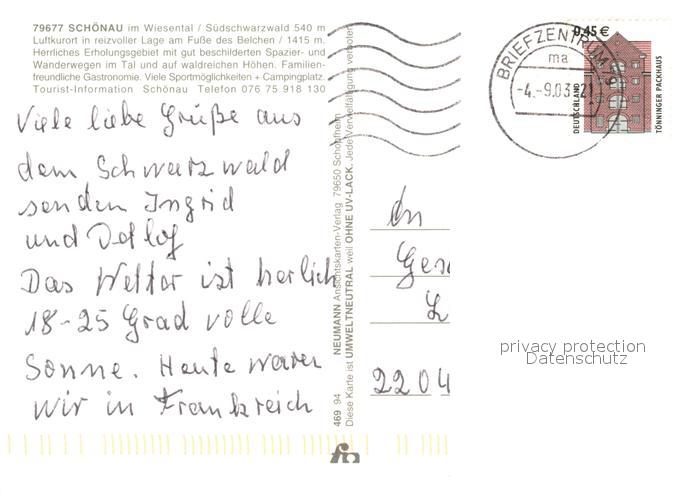 79677 SCHÖNAU im Wiesental / Südschwarzwald 540 m
Luftkurort in reizvoller Lage am Fuße des Belchen / 1415 m.
Herrliches Erholungsgebiet mit gut beschilderten Spazier- und
Wanderwegen im Tal und auf waldreichen Höhen. Familien-
freundliche Gastronomie. Viele Sportmöglichkeiten + Campingplatz.
Tourist-Information Schönau Telefon 076 75 918 130
Viele liebe Grüße aus
dem Schwarzwald
senden Ingrid
und Detlef
Das Wetter ist herlich
18-25 Grad volle
Sonne. Heute waren
wir in Frankreich
469 94 NEUMANN Ansichtskarten-Verlag 79650 Schopfheim
Diese Karte ist UMWELTNEUTRAL weil OHNE UV-LACK. Jede Vervielfältigung verboten
BRIEFZENTRUM
ma
-4.-9.03
0,45 €
DEUTSCHLAND
TÖNNINGER PACKHAUS
An
2204
privacy protection
Datenschutz